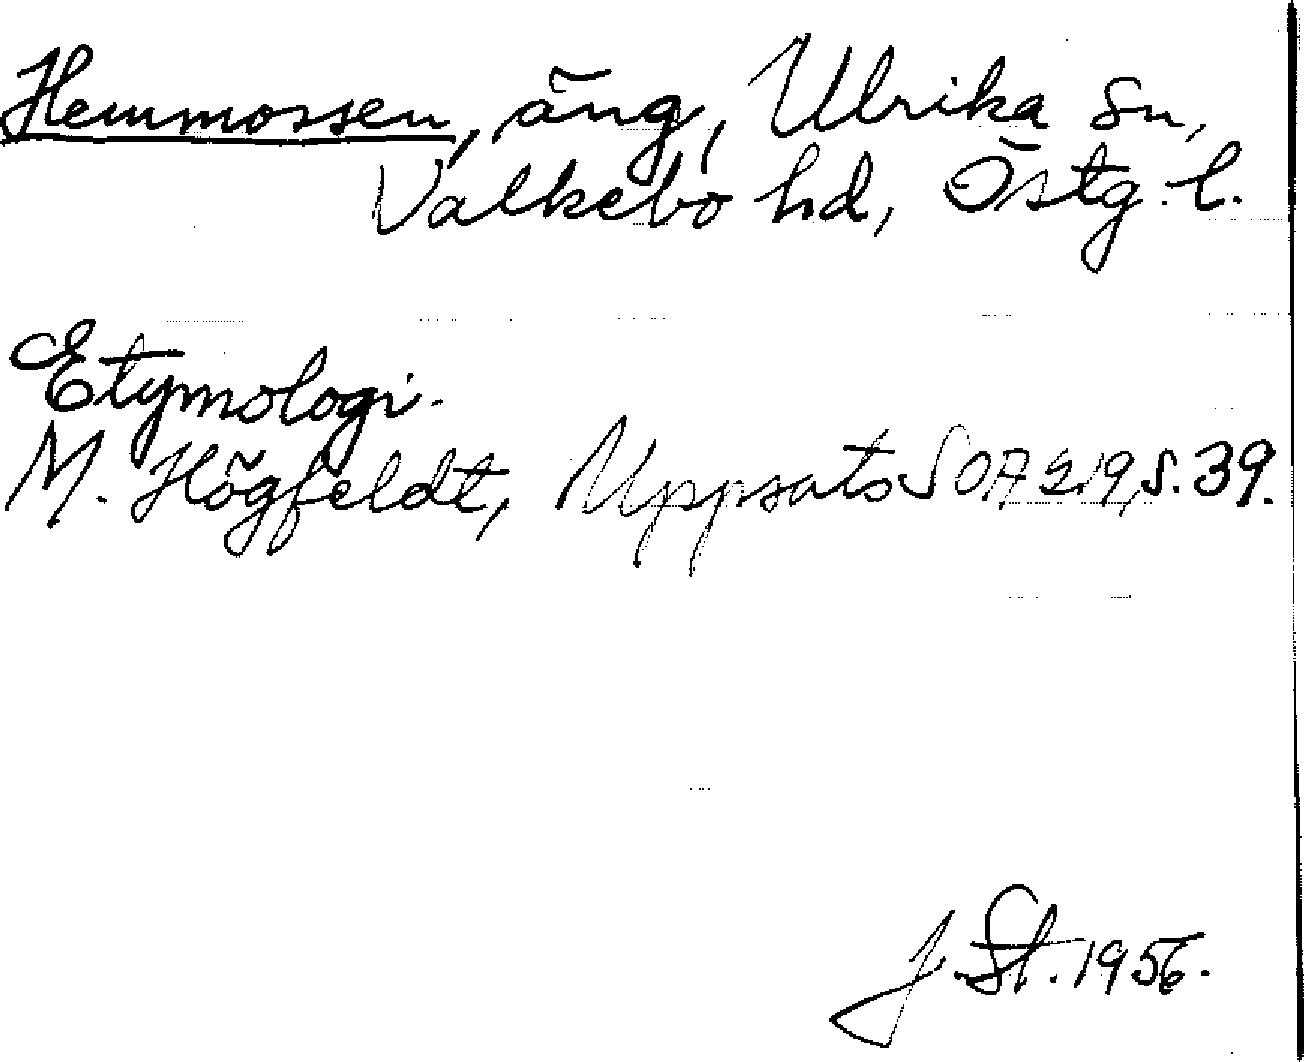 Hemmossen, äng, Ulrika sn,
Valkebo hd, Östg. l.
Etymologi.
M. Högfeldt, Uppsats SOA 219, s. 39.
J. St. 1956.